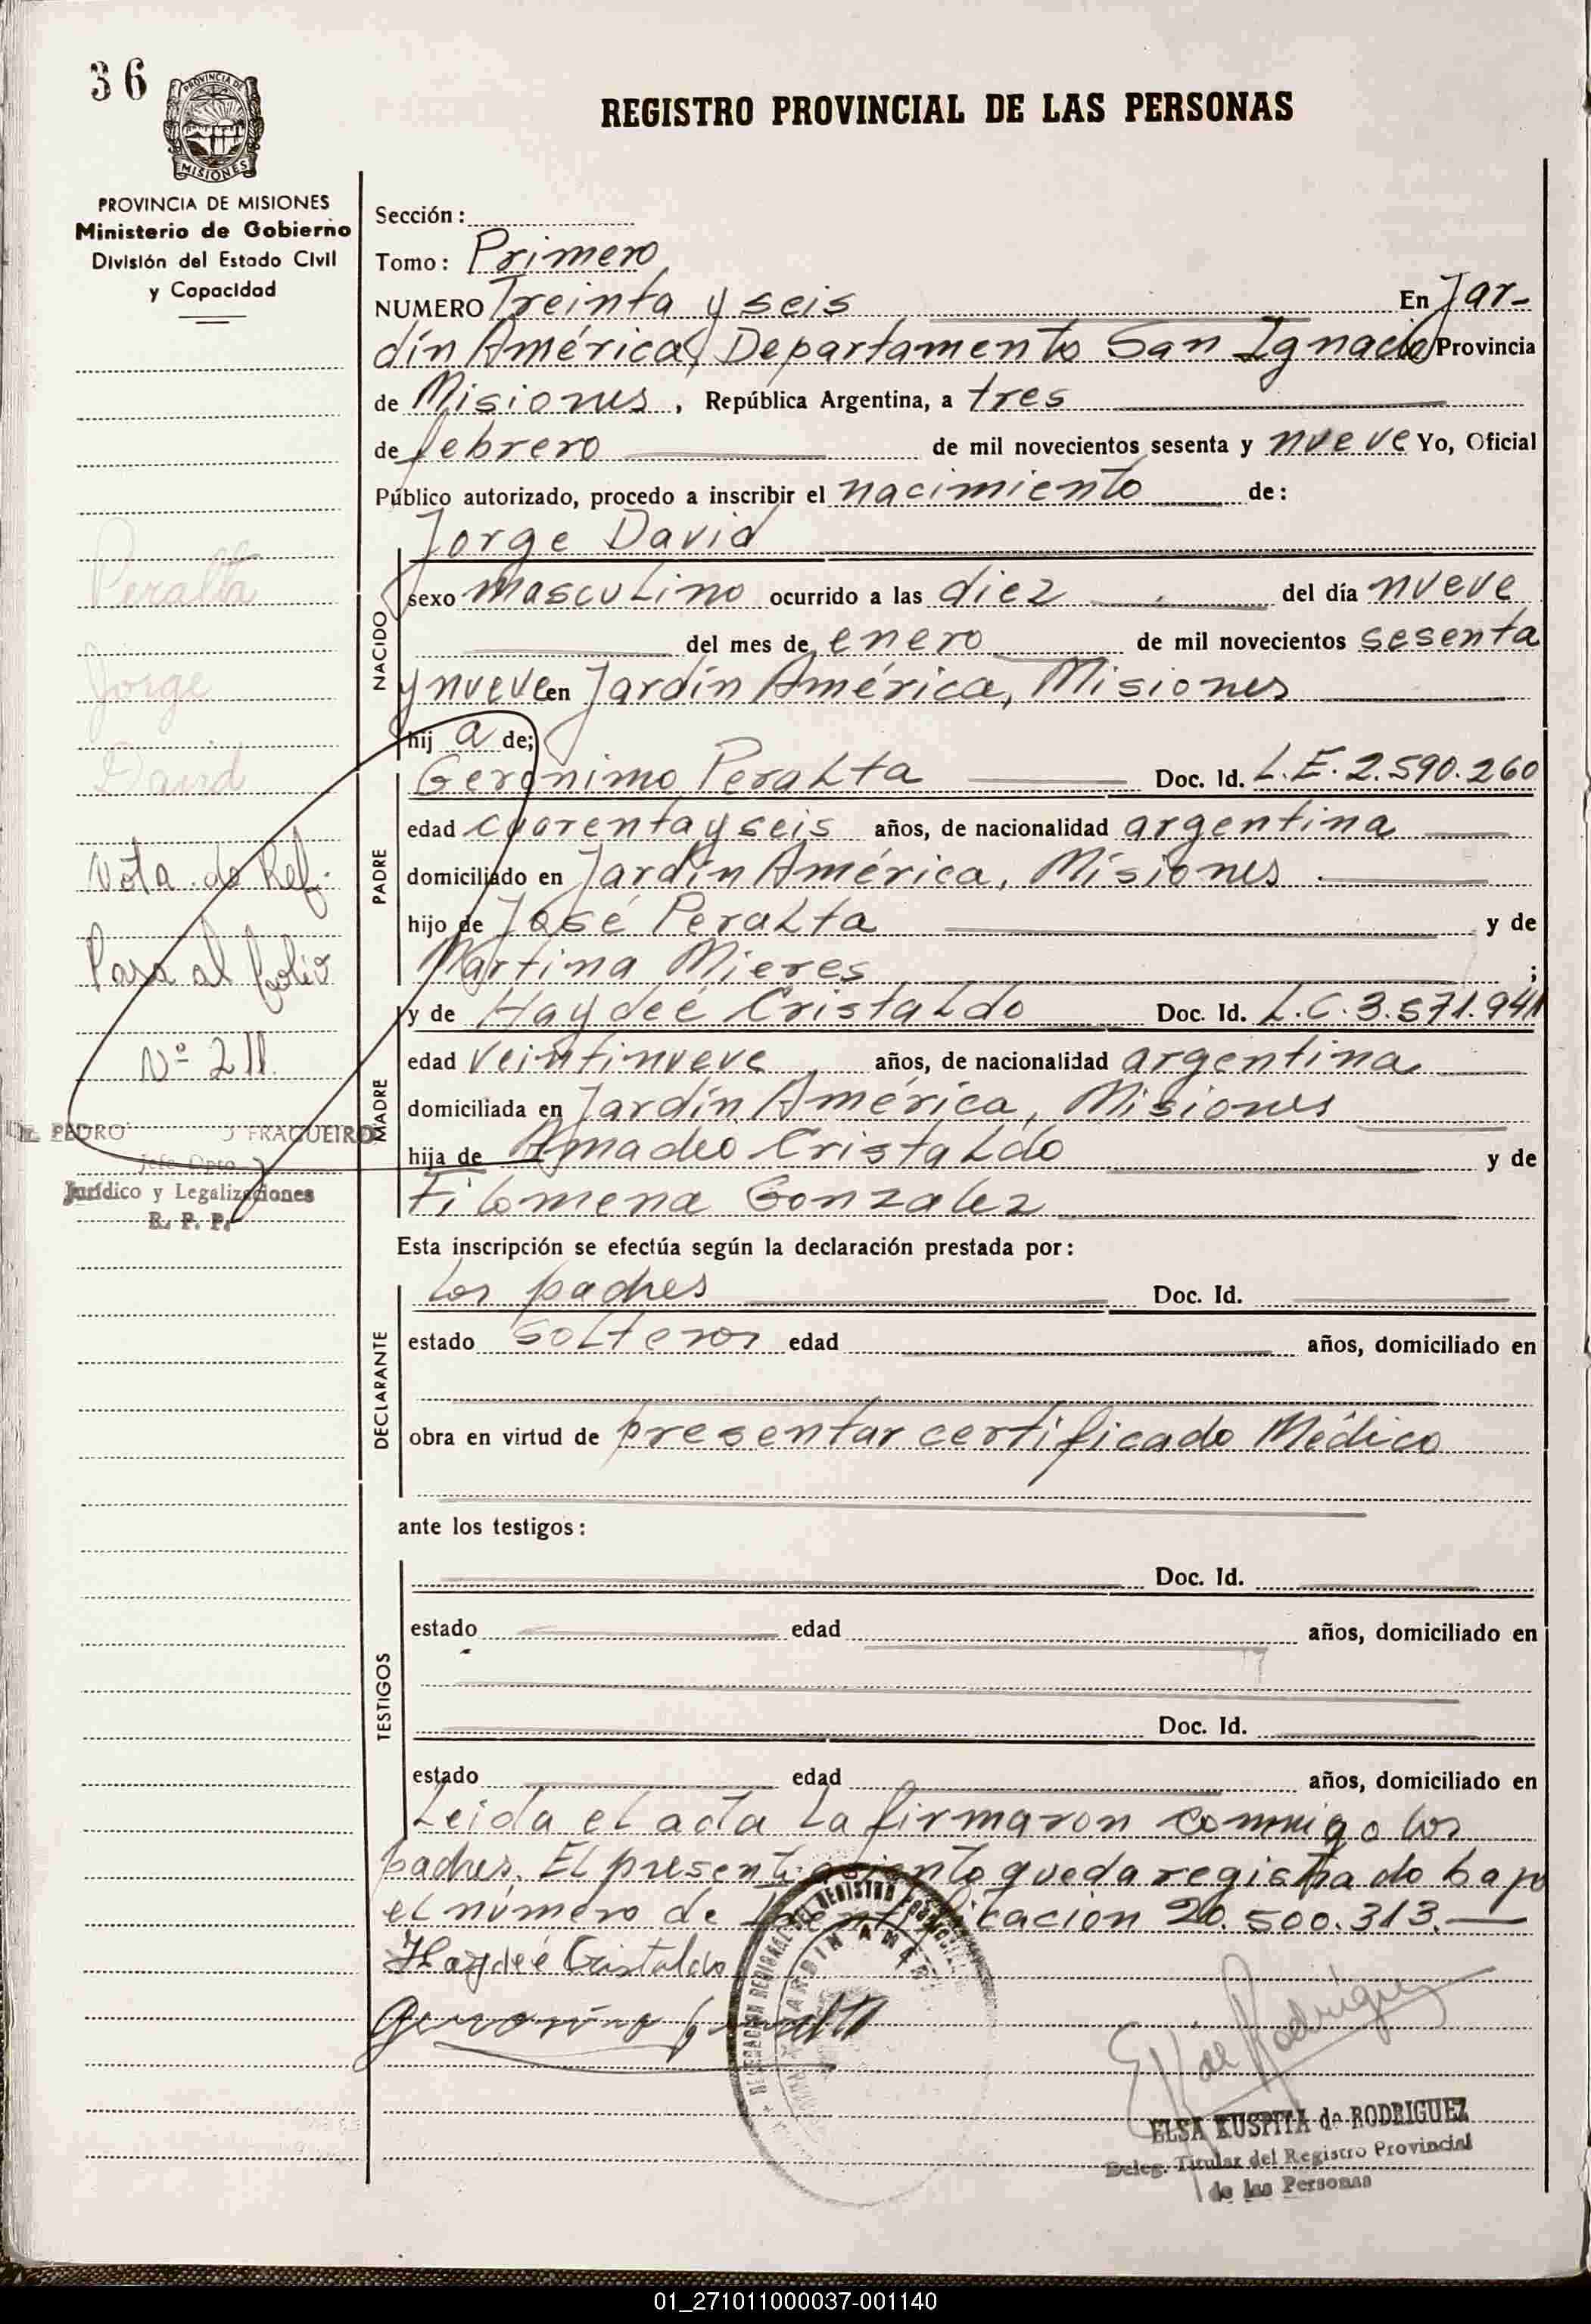 36
PROVINCIA DE
MISIONES
PROVINCIA DE MISIONES
Ministerio de Gobierno
División del Estado Civil
y Capacidad
REGISTRO PROVINCIAL DE LAS PERSONAS
Sección:
Tomo: Primero
NUMERO Treinta y seis En Jar-
dín América, Departamento San Ignacio Provincia
de Misiones, República Argentina, a tres
de febrero de mil novecientos sesenta y nueve Yo, Oficial
Público autorizado, procedo a inscribir el nacimiento de:
Jorge David
NACIDO
sexo masculino ocurrido a las diez del día nueve
del mes de enero de mil novecientos sesenta
y nueve en Jardín América, Misiones
hij a de;
PADRE
Gerónimo Peralta Doc. Id. L.E. 2.590.260
edad cuarenta y seis años, de nacionalidad argentina
domiciliado en Jardín América, Misiones
hijo de José Peralta y de
Martina Mieres ;
MADRE
y de Haydeé Cristaldo Doc. Id. L.C. 3.571.941
edad veintinueve años, de nacionalidad argentina
domiciliada en Jardín América, Misiones
hija de Amadeo Cristaldo y de
Filomena Gonzalez
Esta inscripción se efectúa según la declaración prestada por:
DECLARANTE
los padres Doc. Id.
estado solteros edad años, domiciliado en
obra en virtud de presentar certificado Médico
ante los testigos:
TESTIGOS
Doc. Id.
estado edad años, domiciliado en
Doc. Id.
estado edad años, domiciliado en
Leida el acta la firmaron conmigo los
padres. El presente asiento queda registrado bajo
el número de Identificación 20.500.313.
Haydeé Cristaldo
Geronimo Peralta
E K de Rodriguez
ELSA KUSPITA de RODRIGUEZ
Deleg. Titular del Registro Provincial
de las Personas
Peralta
Jorge
David
Nota de Ref.
Pasa al folio
Nº 211
PEDRO FRAGUEIRO
Jefe Dpto
Jurídico y Legalizaciones
R. P. P.
01_271011000037-001140